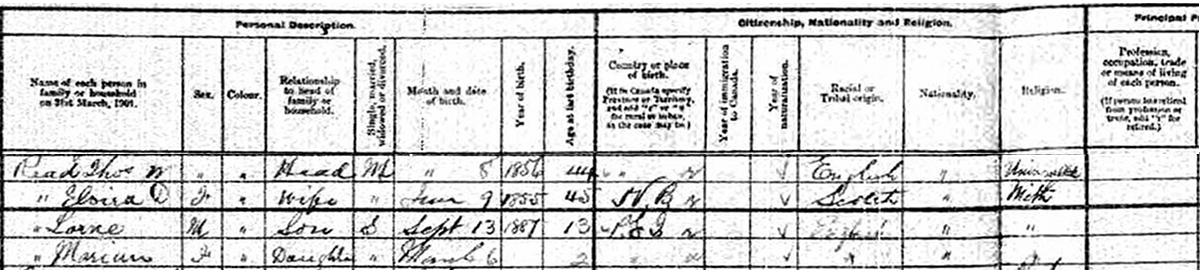 Personal Description. Citizenship, Nationality and Religion. Principal
Name of each person in family or household on 31st March, 1901. Sex. Colour. Relationship to head of family or household. Single, married, widowed or divorced. Month and date of birth. Year of birth. Age at last birthday. Country or place of birth. (If in Canada specify Province or Territory, and add "r" or "u" for rural or urban, as the case may be.) Year of immigration to Canada. Year of naturalization. Racial or Tribal origin. Nationality. Religion. Profession, occupation, trade or means of living of each person. (If person has retired from profession or trade, add "r" for retired.)
Read Thos W " " Head M " 8 1856 44 " r English "
" Elvira F " Wife " Jun 9 1855 45 N B r Scotch " Meth
" Lorne M " Son S Sept 13 1887 13 P.E.I r English " "
" F " Daughter " March 6 " "